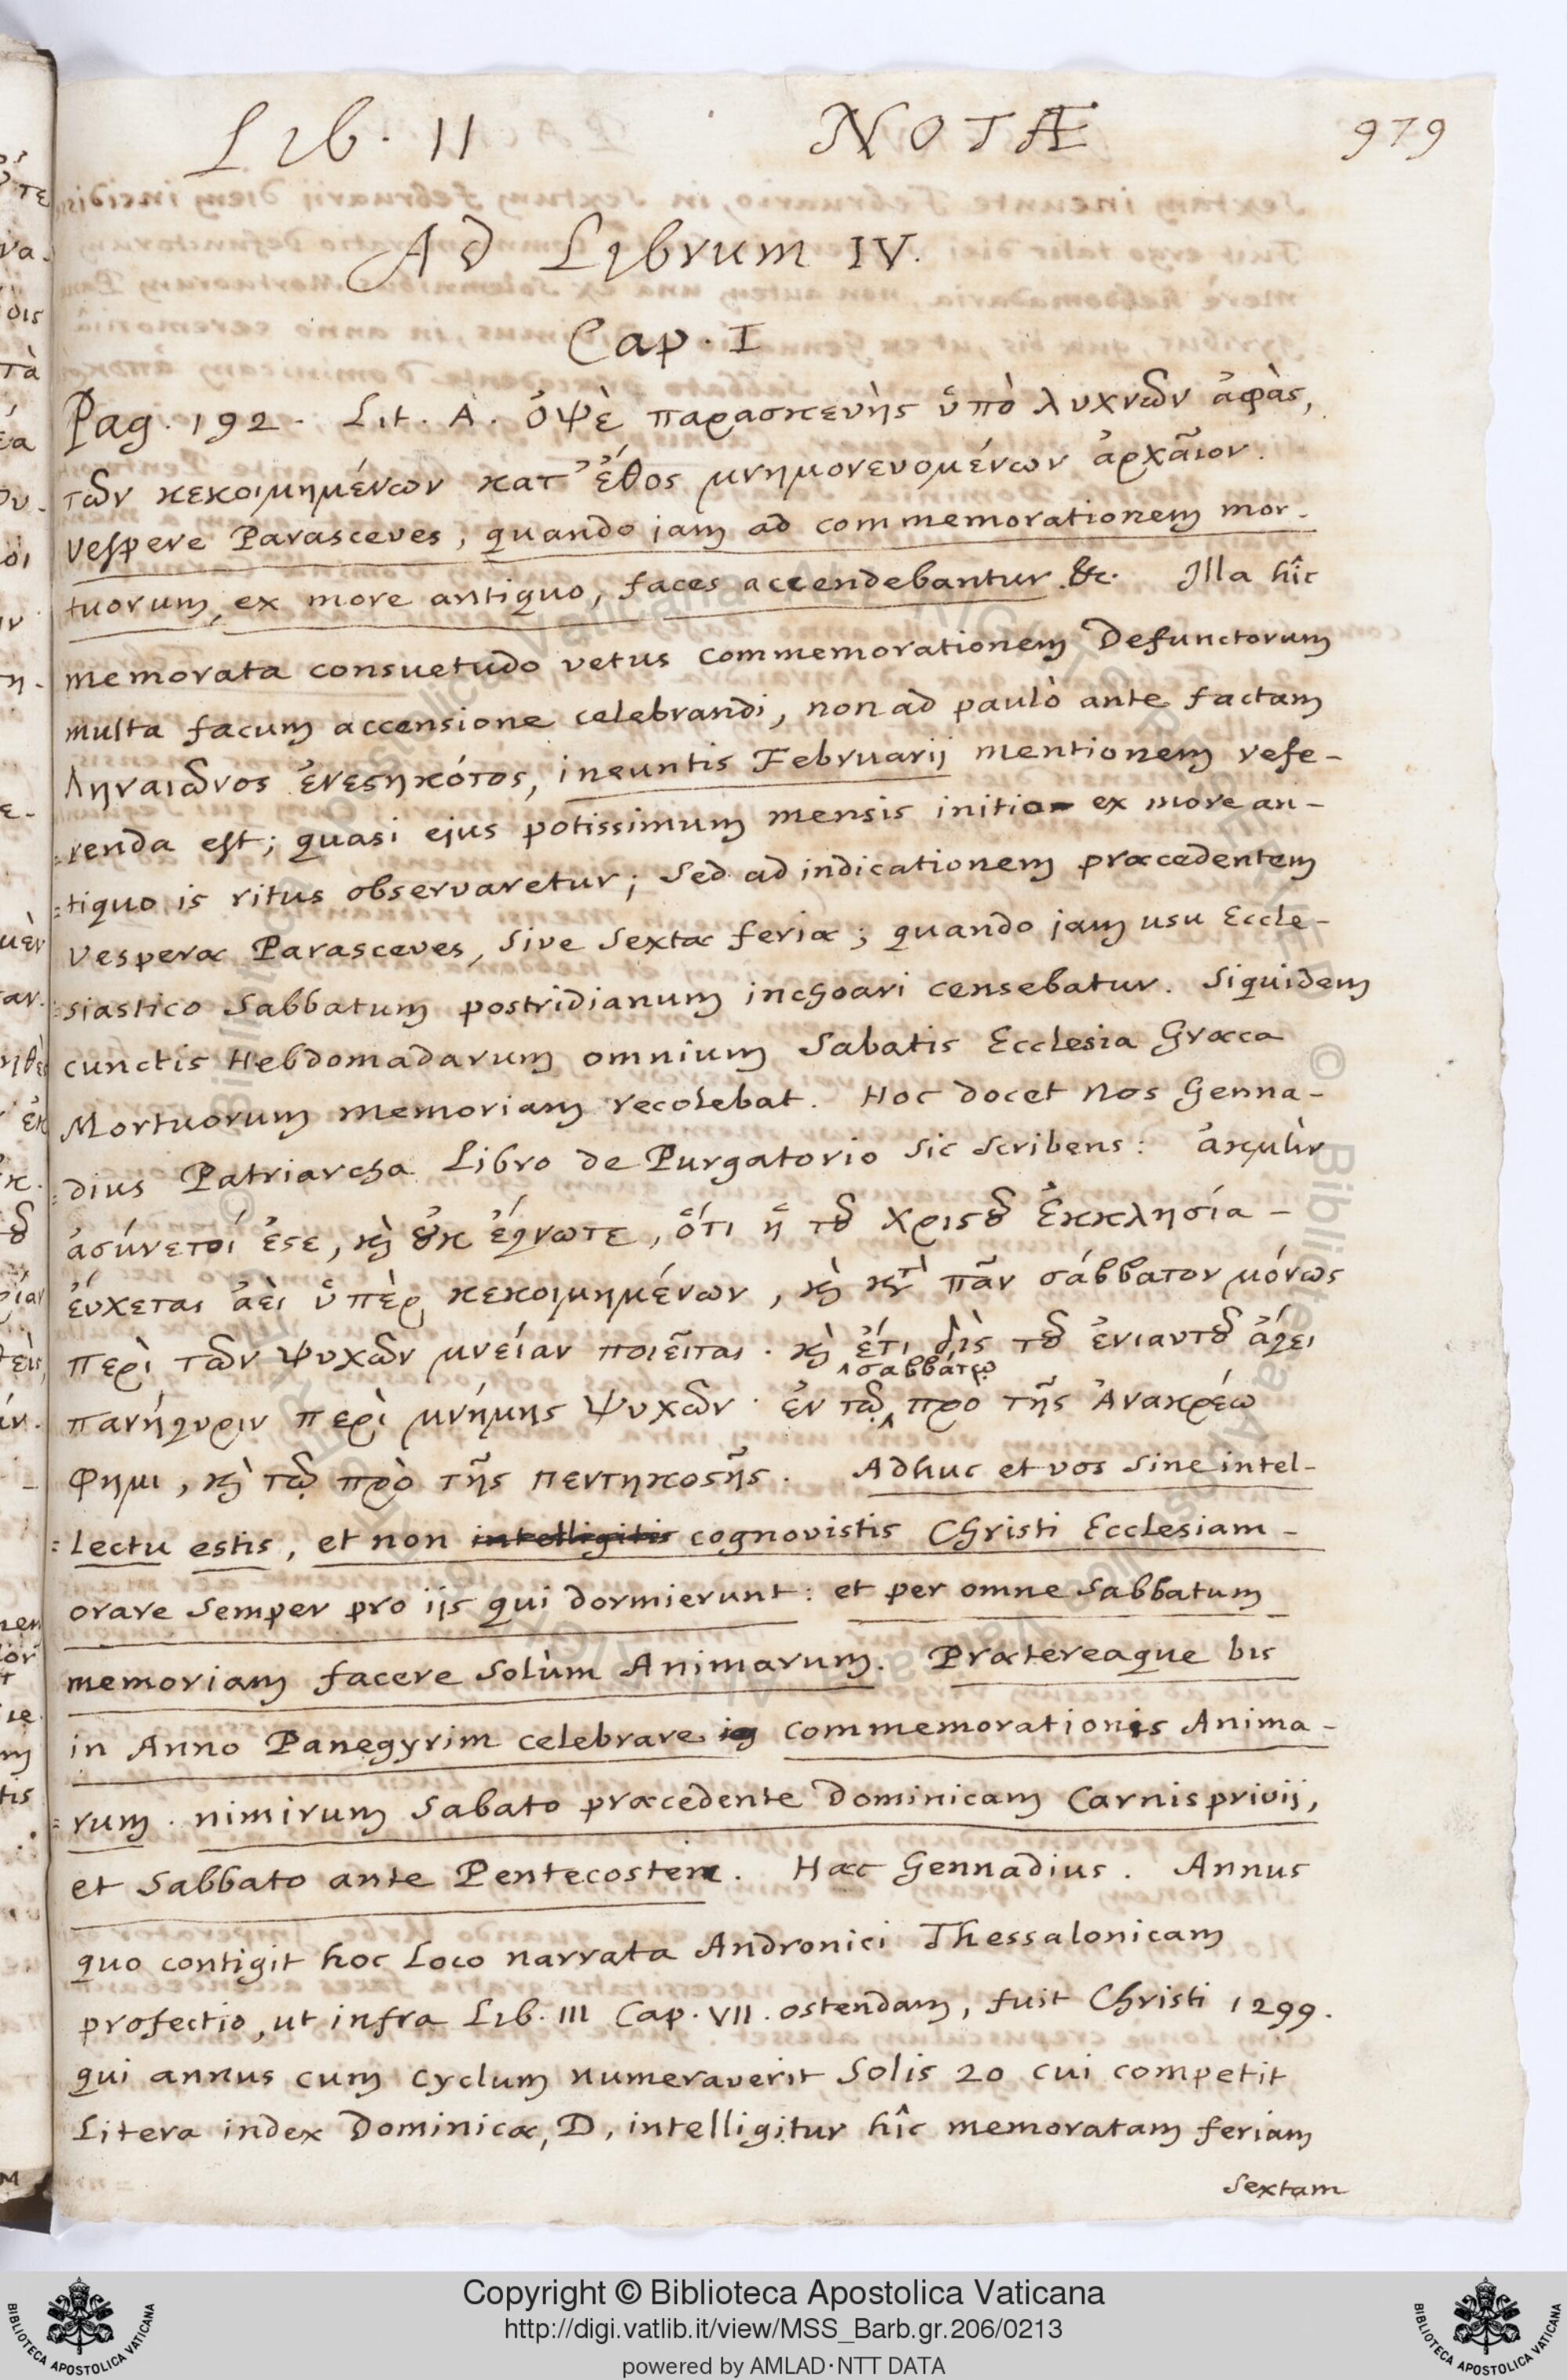 Lib. II NOTÆ 979
Ad Librum IV.
Cap. I
Pag. 192. Lit. A. ὀψὲ παρασκευῆς ὑπὸ λυχνῶν ἁφὰς,
τῶν κεκοιμημένων κατ' ἔθος μνημονευομένων ἀρχαῖον.
Vespere Parasceves, quando jam ad commemorationem mor-
tuorum, ex more antiquo, faces accendebantur &c. Illa hîc
memorata consuetudo vetus commemorationem Defunctorum
multa facum accensione celebrandi, non ad paulò ante factam
Ληναιῶνος ἐνεστηκότος, ineuntis Februarij mentionem refe-
renda est; quasi ejus potissimum mensis initio ex more an-
tiquo is ritus observaretur; Sed ad indicationem præcedentem
Vesperæ Parasceves, Sive Sextæ feriæ; quando jam usu Eccle-
siastico Sabbatum postridianum inchoari censebatur. Siquidem
cunctis Hebdomadarum omnium Sabatis Ecclesia Græca
Mortuorum memoriam recolebat. Hoc docet nos Genna-
dius Patriarcha Libro de Purgatorio Sic Scribens: ἀκμὴν
ἀσύνετοί ἐστε, κὶ οὐκ ἔγνωτε, ὅτι ἡ τοῦ Χριστοῦ Ἐκκλησία -
εὔχεται ἀεὶ ὑπὲρ κεκοιμημένων, κὶ κτ̀ πᾶν σάββατον μόνως
περὶ τῶν ψυχῶν μνείαν ποιεῖται. κὶ ἔτι δὶς τοῦ ἐνιαυτοῦ ἄγει
σαββάτῳ
πανήγυριν περὶ μνήμης ψυχῶν. ἐν τῷ πρὸ τῆς Ἀνακρέω
φημι, κὶ τῷ πρὸ τῆς πεντηκοστῆς. Adhuc et vos Sine intel-
lectu estis, et non intelligitis cognovistis Christi Ecclesiam -
orare Semper pro iis qui dormierunt: et per omne Sabbatum
memoriam facere Solùm Animarum. Prætereaque bis
in Anno Panegyrim celebrare commemorationis Anima-
rum. nimirum Sabato præcedente Dominicam Carnisprivij,
et Sabbato ante Pentecosten. Hæc Gennadius. Annus
quo contigit hoc Loco narrata Andronici Thessalonicam
profectio, ut infra Lib. III Cap. VII. ostendam, fuit Christi 1299.
qui annus cum cyclum numeraverit Solis 20 cui competit
Litera index Dominicæ, D, intelligitur hîc memoratam feriam
Sextam
Copyright © Biblioteca Apostolica Vaticana
http://digi.vatlib.it/view/MSS_Barb.gr.206/0213
powered by AMLAD·NTT DATA
BIBLIOTECA APOSTOLICA VATICANA
BIBLIOTECA APOSTOLICA VATICANA